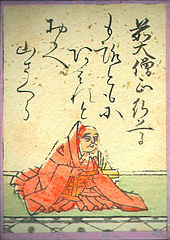 前大僧正行尊
もろともに
あはれと
おもへ
山さくら